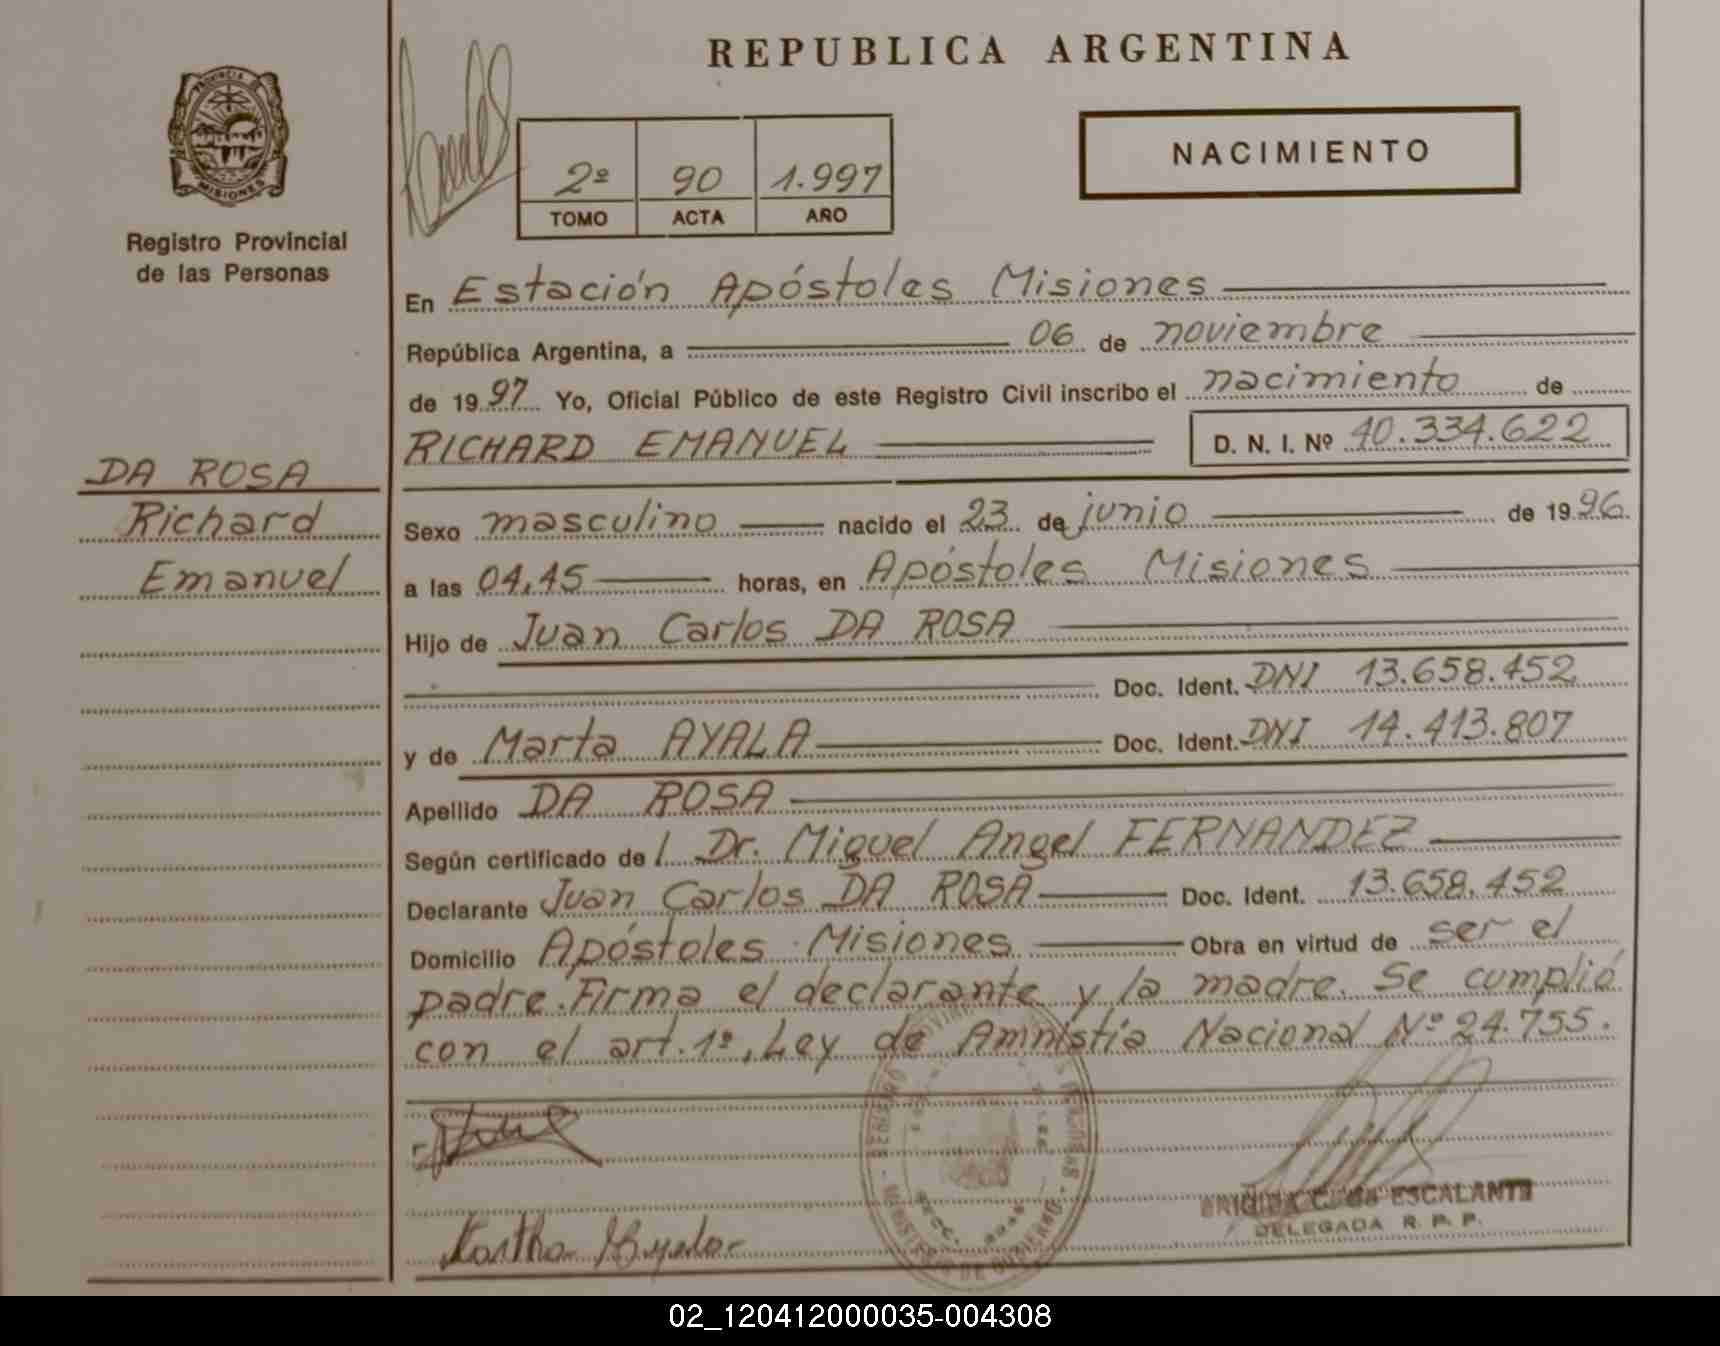 REPUBLICA ARGENTINA
PROVINCIA DE
MISIONES
Registro Provincial
de las Personas
2º 90 1.997
TOMO ACTA AÑO
NACIMIENTO
En Estación Apóstoles Misiones
República Argentina, a 06 de noviembre
de 1997 Yo, Oficial Público de este Registro Civil inscribo el nacimiento de
RICHARD EMANUEL D. N. I. Nº 40.334.622
DA ROSA
Richard
Emanuel
Sexo masculino nacido el 23 de junio de 1996
a las 04,45 horas, en Apóstoles Misiones
Hijo de Juan Carlos DA ROSA
Doc. Ident. DNI 13.658.452
y de Marta AYALA Doc. Ident. DNI 14.413.807
Apellido DA ROSA
Según certificado de l Dr. Miguel Angel FERNANDEZ
Declarante Juan Carlos DA ROSA Doc. Ident. 13.658.452
Domicilio Apóstoles Misiones Obra en virtud de ser el
padre. Firma el declarante y la madre. Se cumplió
con el art. 1º, Ley de Amnistía Nacional Nº 24.755.
MINISTERIO DE GOBIERNO
BRIGIDA ESCALANTE
DELEGADA R. P. P.
02_120412000035-004308